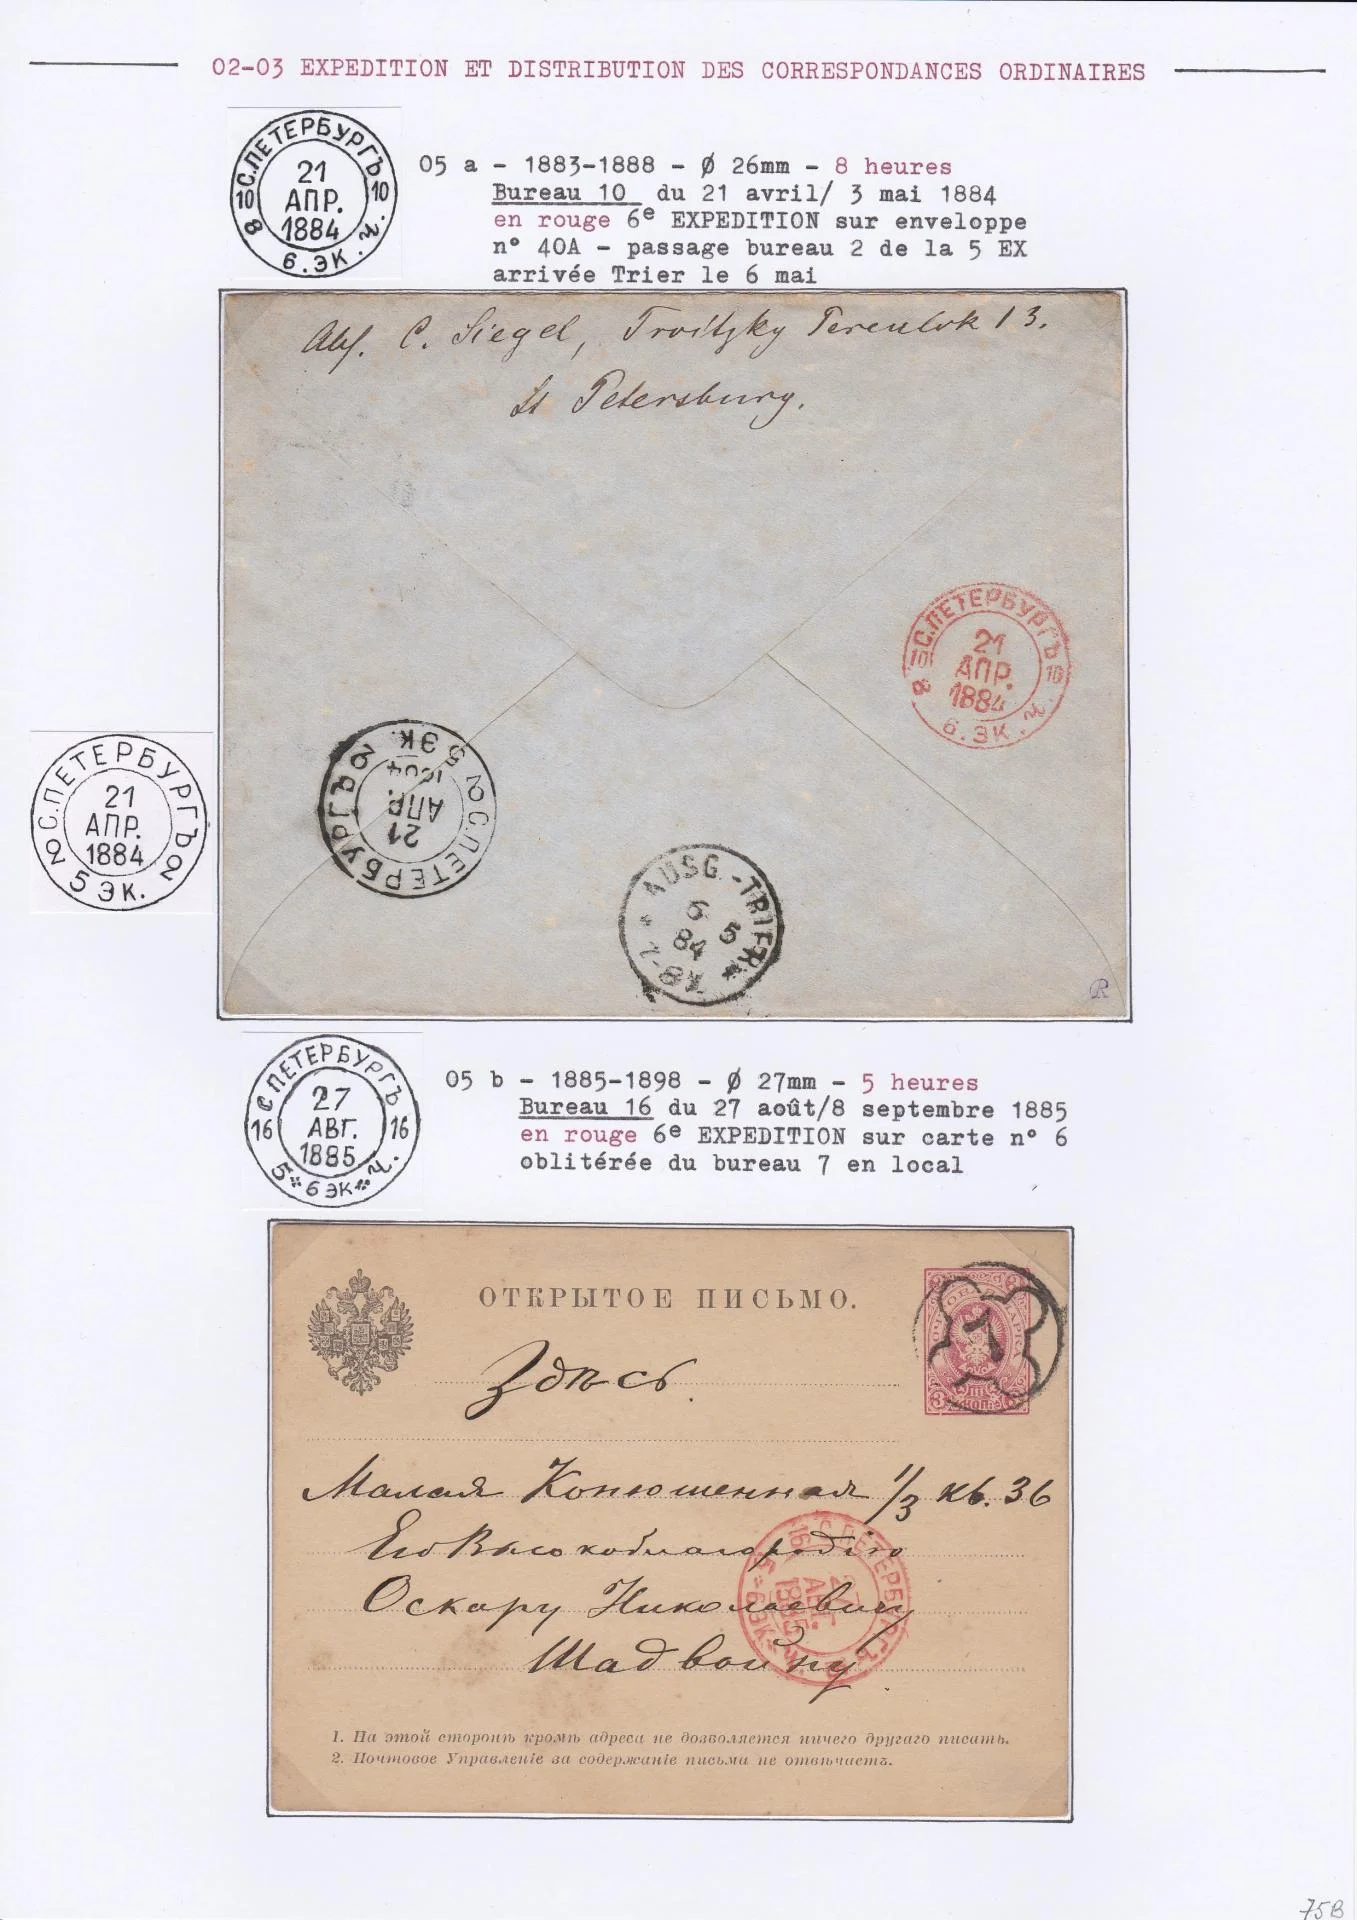 02-03 EXPEDITION ET DISTRIBUTION DES CORRESPONDANCES ORDINAIRES
С.ПЕТЕРБУРГЪ
10 21 10
АПР.
8 1884 ч.
6.ЭК.
05 a - 1883-1888 - Ø 26mm - 8 heures
Bureau 10 du 21 avril/ 3 mai 1884
en rouge 6e EXPEDITION sur enveloppe
n° 40A - passage bureau 2 de la 5 EX
arrivée Trier le 6 mai
Abs. C. Siegel, Troitzky Pereulok 13.
St Petersburg.
С.ПЕТЕРБУРГЪ
10 21 10
АПР.
8 1884 ч.
6.ЭК.
С.ПЕТЕРБУРГЪ
2 21 2
АПР.
1884
5 ЭК.
С.ПЕТЕРБУРГЪ
2 21 2
АПР.
1884
5 ЭК.
AUSG.-TRIER
6 5
84
R
С.ПЕТЕРБУРГЪ
27
16 АВГ. 16
1885
5 6 ЭК ч.
05 b - 1885-1898 - Ø 27mm - 5 heures
Bureau 16 du 27 août/8 septembre 1885
en rouge 6e EXPEDITION sur carte n° 6
oblitérée du bureau 7 en local
ОТКРЫТОЕ ПИСЬМО.
7
Здѣсь.
Малая Конюшенная 1/3 кв. 36
Его Высокоблагородію
Оскару Николаевичу
Шадвойну
С.ПЕТЕРБУРГЪ
16 27
АВГ.
1885
5 6 ЭК ч.
1. На этой сторонѣ кромѣ адреса не дозволяется ничего другаго писать.
2. Почтовое Управленіе за содержаніе письма не отвѣчаетъ.
75B